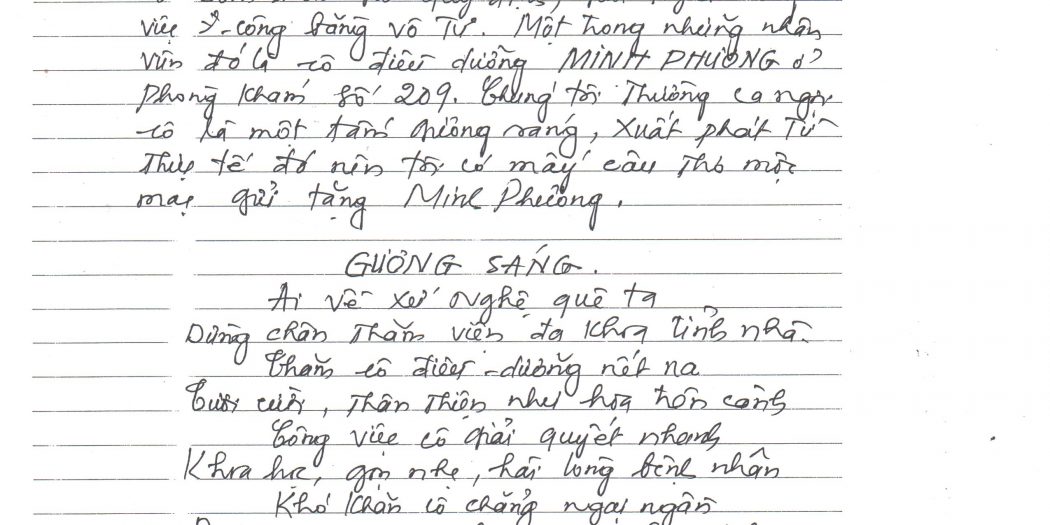 việc, công bằng vô tư. Một trong những nhân
viên đó là cô điều dưỡng MINH PHƯƠNG ở
phòng khám số 209. Chúng tôi thường ca ngợi
cô là một tấm gương sáng, xuất phát từ
thực tế đó nên tôi có mấy câu thơ mộc
mạc gửi tặng Minh Phương.
GƯƠNG SÁNG.
Ai về xứ nghệ quê ta
Dừng chân thăm viện đa khoa tỉnh nhà.
Thăm cô điều-dưỡng nết na
Tươi cười, thân thiện như hoa trên cành
Công việc cô giải quyết nhanh
Khoa học, gọn nhẹ, hài lòng bệnh nhân
Khó khăn cô chẳng ngại ngần